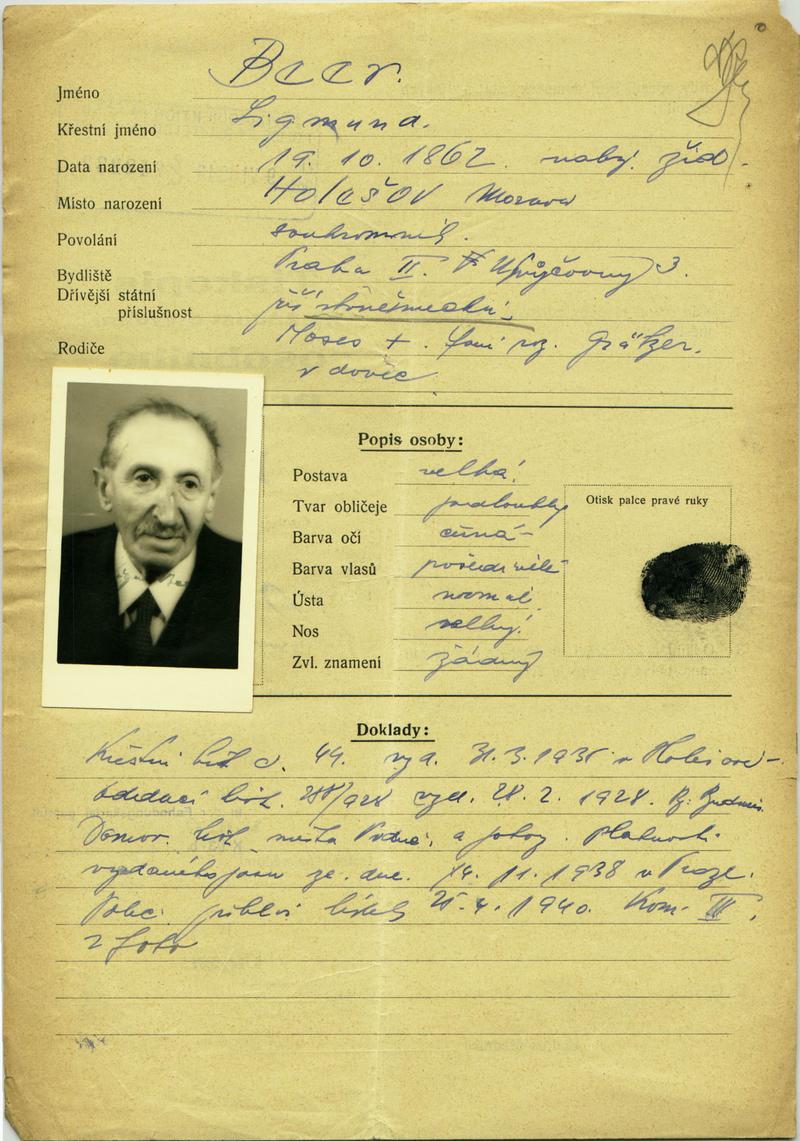 Jméno Beer.
Křestní jméno Sigmund.
Data narození 19. 10. 1862. nabž. žid.
Místo narození Holešov Morava
Povolání soukromník.
Bydliště Praha II. 3.
Dřívější státní
příslušnost
Rodiče Moses + . roz. Grätzer.
vdovec
Popis osoby:
Postava velká.
Tvar obličeje podlouhlý
Otisk palce pravé ruky
Barva očí černá
Barva vlasů
Ústa normal
Nos velký.
Zvl. znamení žádný
Doklady:
Křestní list č. 44. vyd. 31. 3. 193 v Holešově
Oddací list. /928 vyd. 28. 2. 1928.
Domov. list, města a platnosti
vydaného ze dne. 11. 1938 v Praze.
Polic. lístek 4. 1940. Kom. III.
2 foto